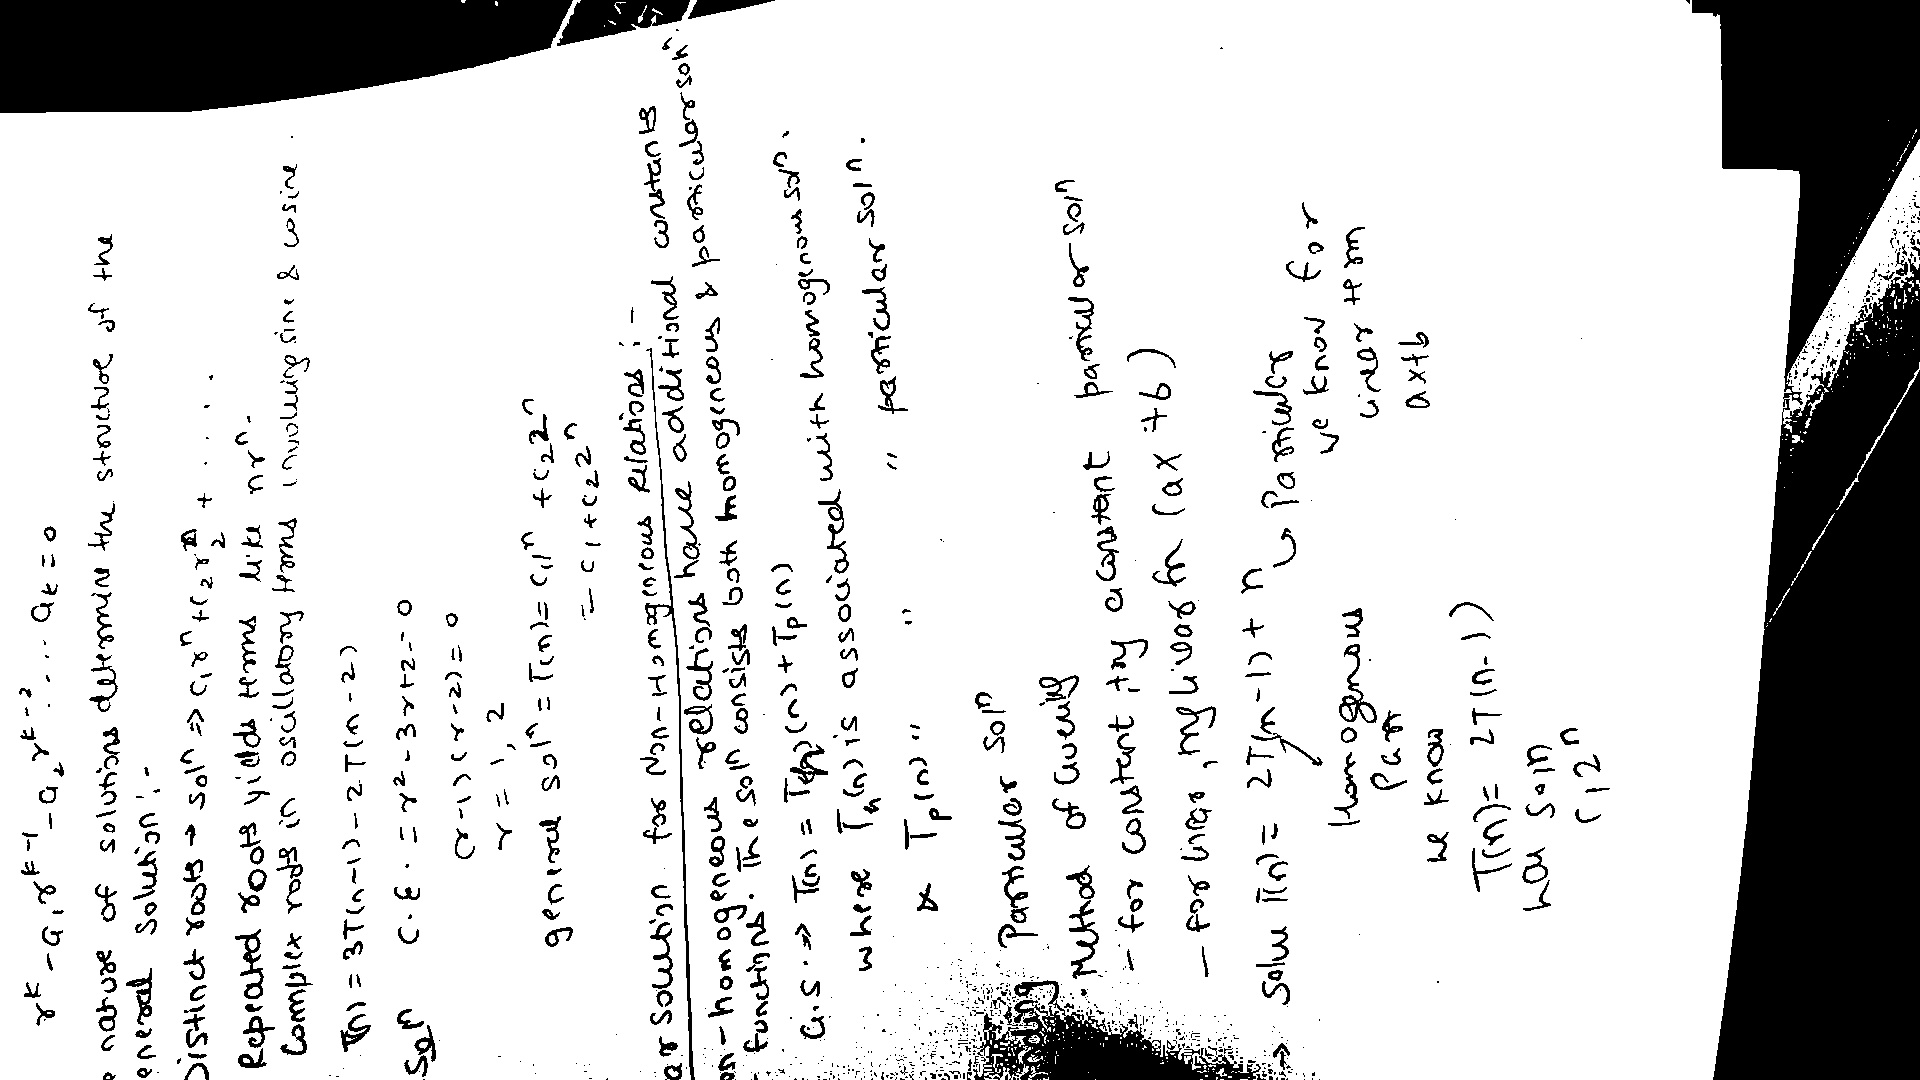 r^k - a₁r^k-1 - a₂r^k-2 ..... a_k = 0
nature of solutions determine the structure of the
eneral solution :-
Distinct roots → solⁿ ⇒ c₁rⁿ + c₂r₂ⁿ + .....
Repeated roots yields terms like nrⁿ.
Complex roots in oscillatory terms involving sine & cosine.
T(n) = 3T(n-1) - 2T(n-2)
Solⁿ C.E. = r² - 3r + 2 = 0
(r-1)(r-2) = 0
r = 1, 2
general solⁿ = T(n) = c₁1ⁿ + c₂2ⁿ
= c₁ + c₂2ⁿ
ar solution for Non-Homogeneous Relations :-
on-homogeneous relations have additional constants
functions. The solⁿ consists both homogeneous & particular solⁿ.
G.S. ⇒ T(n) = Th(n) + Tp(n)
where Th(n) is associated with homogenous solⁿ.
& Tp(n) " " " particular solⁿ.
nding Particular solⁿ
· Method of Guessing
- for constant, try a constant particular solⁿ
- for linear, try linear fn (ax + b)
→ Solve T(n) = 2T(n-1) + n
↳ Particular
we know for
linear term
ax+b
Homogenous
Part
we know
T(n) = 2T(n-1)
has soln
c₁2ⁿ